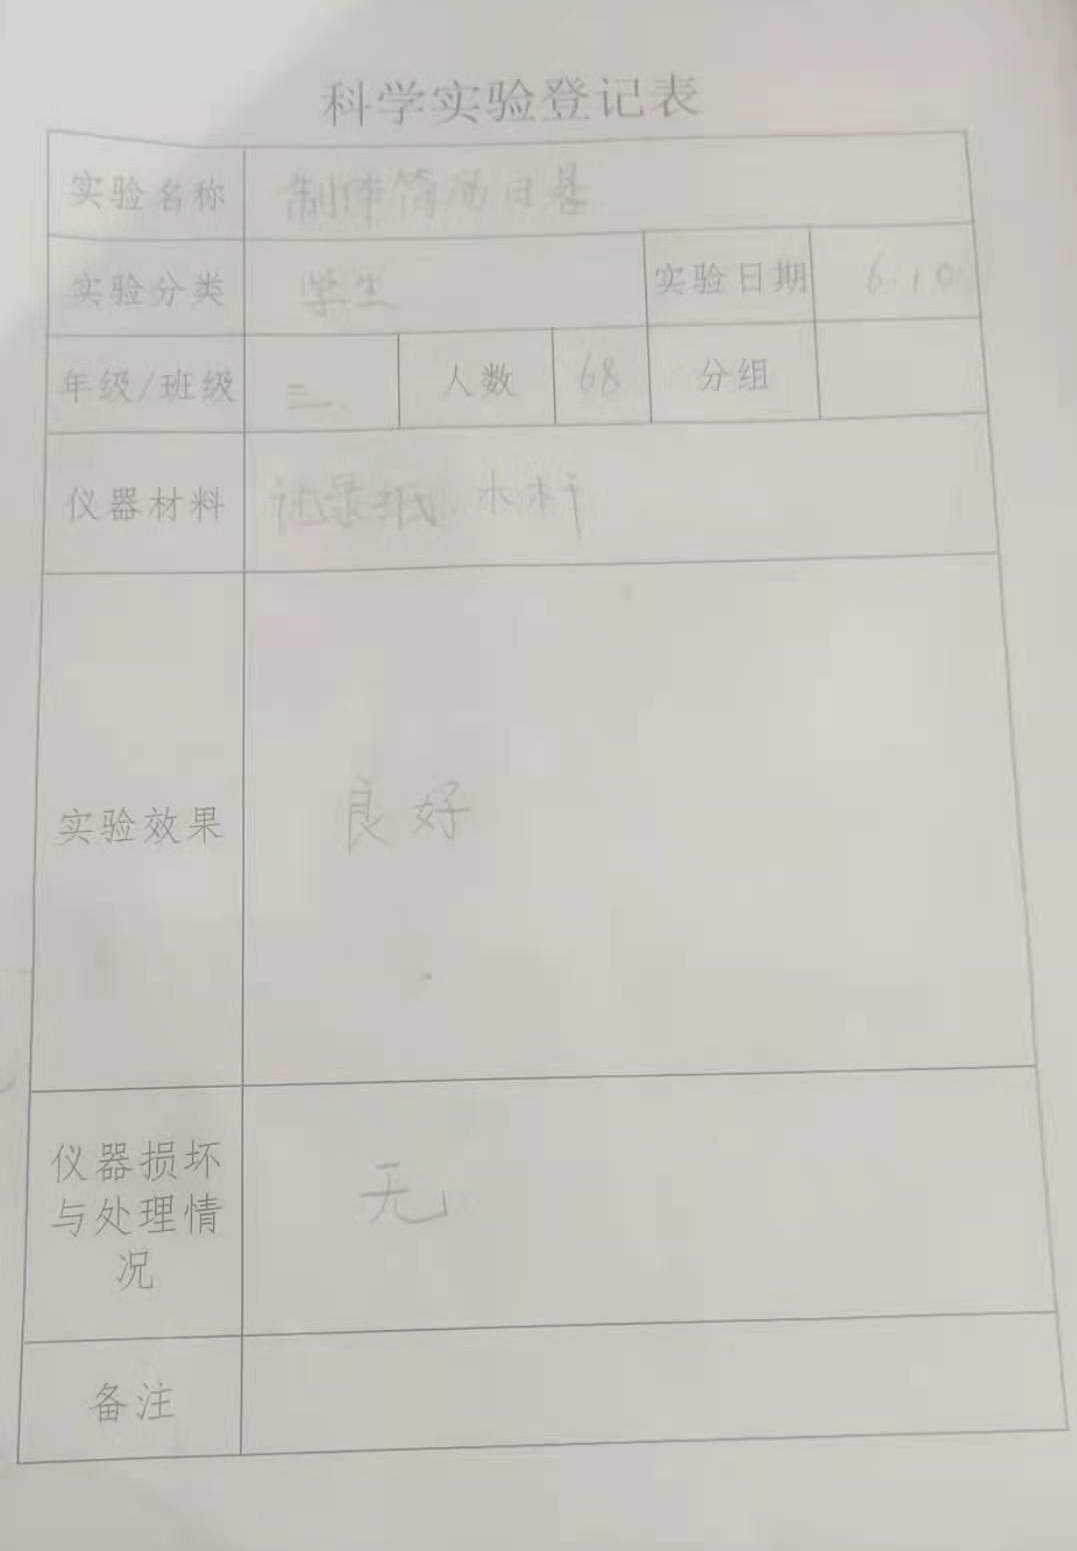 科学实验登记表
实验名称 制作简易日晷
实验分类 学生 实验日期 6.10
年级/班级 三. 人数 68 分组
仪器材料 记录纸 木杆
实验效果 良好
仪器损坏
与处理情
况
无
备注